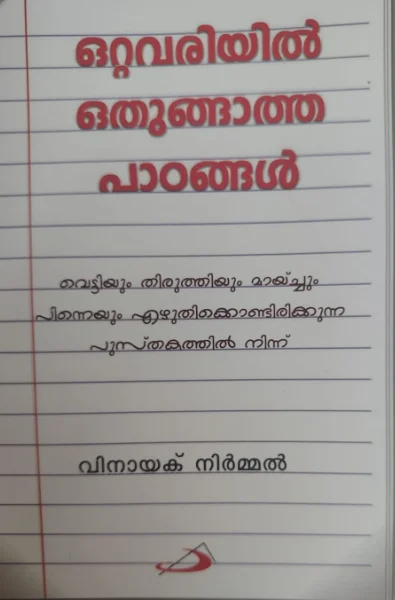 ഒറ്റവരിയിൽ
ഒതുങ്ങാത്ത
പാഠങ്ങൾ
വെട്ടിയും തിരുത്തിയും മായ്ച്ചും
പിന്നെയും എഴുതിക്കൊണ്ടിരിക്കുന്ന
പുസ്തകത്തിൽ നിന്ന്
വിനായക് നിർമ്മൽ